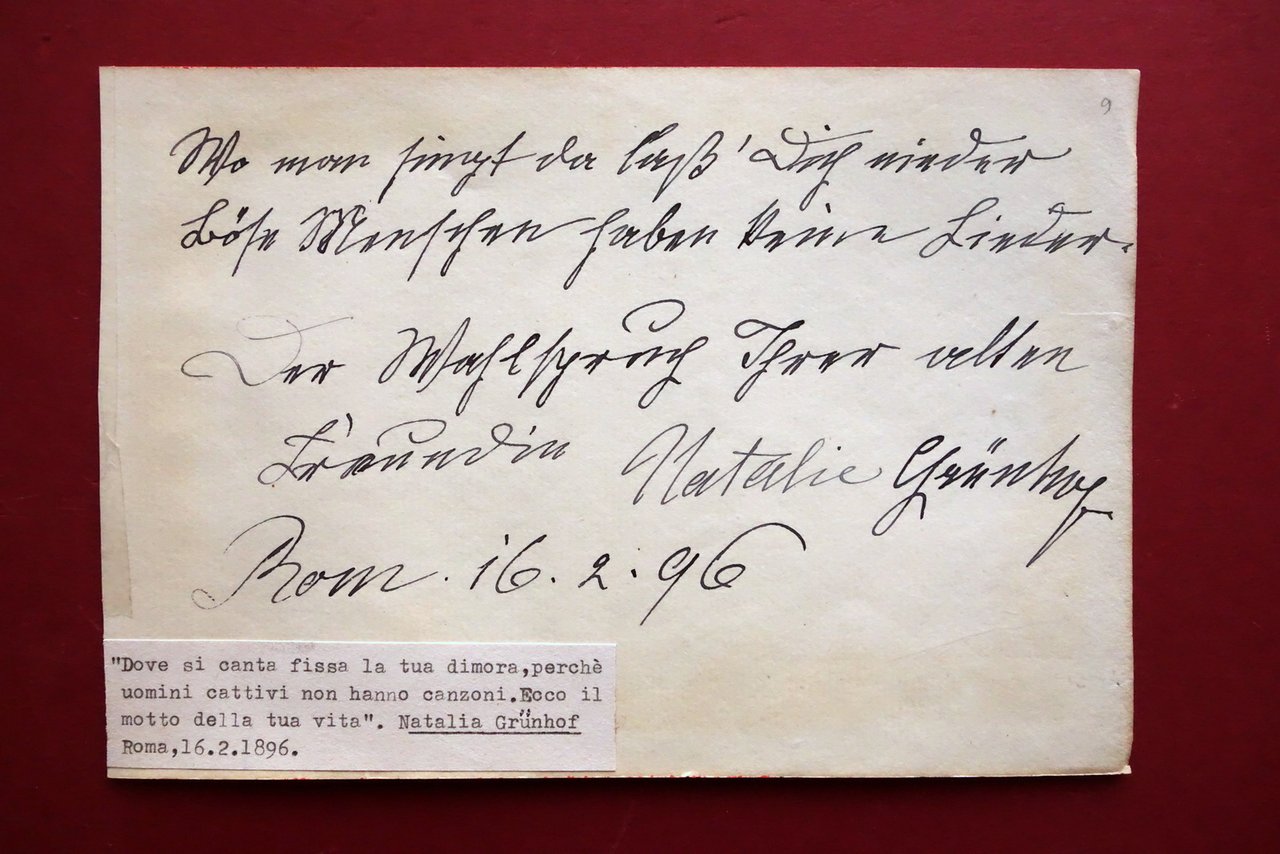 9
Wo man singt da laß' Dich nieder
Böse Menschen haben keine Lieder.
Der Wahlspruch Ihrer alten
Freundin Natalie Grünhof
Rom. 16. 2. 96
"Dove si canta fissa la tua dimora,perchè
uomini cattivi non hanno canzoni.Ecco il
motto della tua vita". Natalia Grünhof
Roma,16.2.1896.